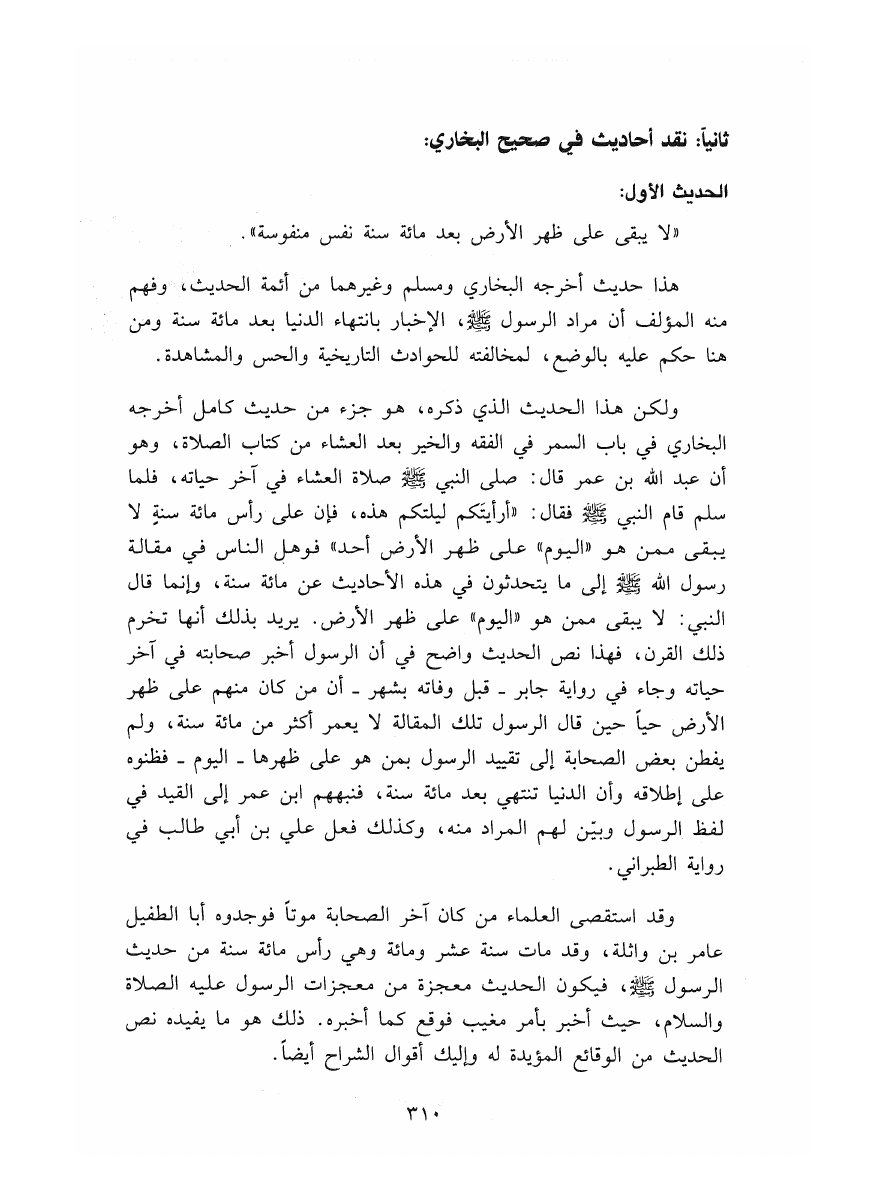 ثانياً: نقد أحاديث في صحيح البخاري:
الحديث الأول:
«لا يبقى على ظهر الأرض بعد مائة سنة نفس منفوسة».
هذا حديث أخرجه البخاري ومسلم وغيرهما من أئمة الحديث، وفهم
منه المؤلف أن مراد الرسول ﷺ، الإخبار بانتهاء الدنيا بعد مائة سنة ومن
هنا حكم عليه بالوضع، لمخالفته للحوادث التاريخية والحس والمشاهدة.
ولكن هذا الحديث الذي ذكره، هو جزء من حديث كامل أخرجه
البخاري في باب السمر في الفقه والخير بعد العشاء من كتاب الصلاة، وهو
أن عبد الله بن عمر قال: صلى النبي ﷺ صلاة العشاء في آخر حياته، فلما
سلم قام النبي ﷺ فقال: «أرأيتَكم ليلتكم هذه، فإن على رأس مائة سنةٍ لا
يبقى ممن هو «اليوم» على ظهر الأرض أحد» فوهل الناس في مقالة
رسول الله ﷺ إلى ما يتحدثون في هذه الأحاديث عن مائة سنة، وإنما قال
النبي: لا يبقى ممن هو «اليوم» على ظهر الأرض. يريد بذلك أنها تخرم
ذلك القرن، فهذا نص الحديث واضح في أن الرسول أخبر صحابته في آخر
حياته وجاء في رواية جابر ـ قبل وفاته بشهر ـ أن من كان منهم على ظهر
الأرض حياً حين قال الرسول تلك المقالة لا يعمر أكثر من مائة سنة، ولم
يفطن بعض الصحابة إلى تقييد الرسول بمن هو على ظهرها ـ اليوم ـ فظنوه
على إطلاقه وأن الدنيا تنتهي بعد مائة سنة، فنبههم ابن عمر إلى القيد في
لفظ الرسول وبيّن لهم المراد منه، وكذلك فعل علي بن أبي طالب في
رواية الطبراني.
وقد استقصى العلماء من كان آخر الصحابة موتاً فوجدوه أبا الطفيل
عامر بن واثلة، وقد مات سنة عشر ومائة وهي رأس مائة سنة من حديث
الرسول ﷺ، فيكون الحديث معجزة من معجزات الرسول عليه الصلاة
والسلام، حيث أخبر بأمر مغيب فوقع كما أخبره. ذلك هو ما يفيده نص
الحديث من الوقائع المؤيدة له وإليك أقوال الشراح أيضاً.
٣١٠